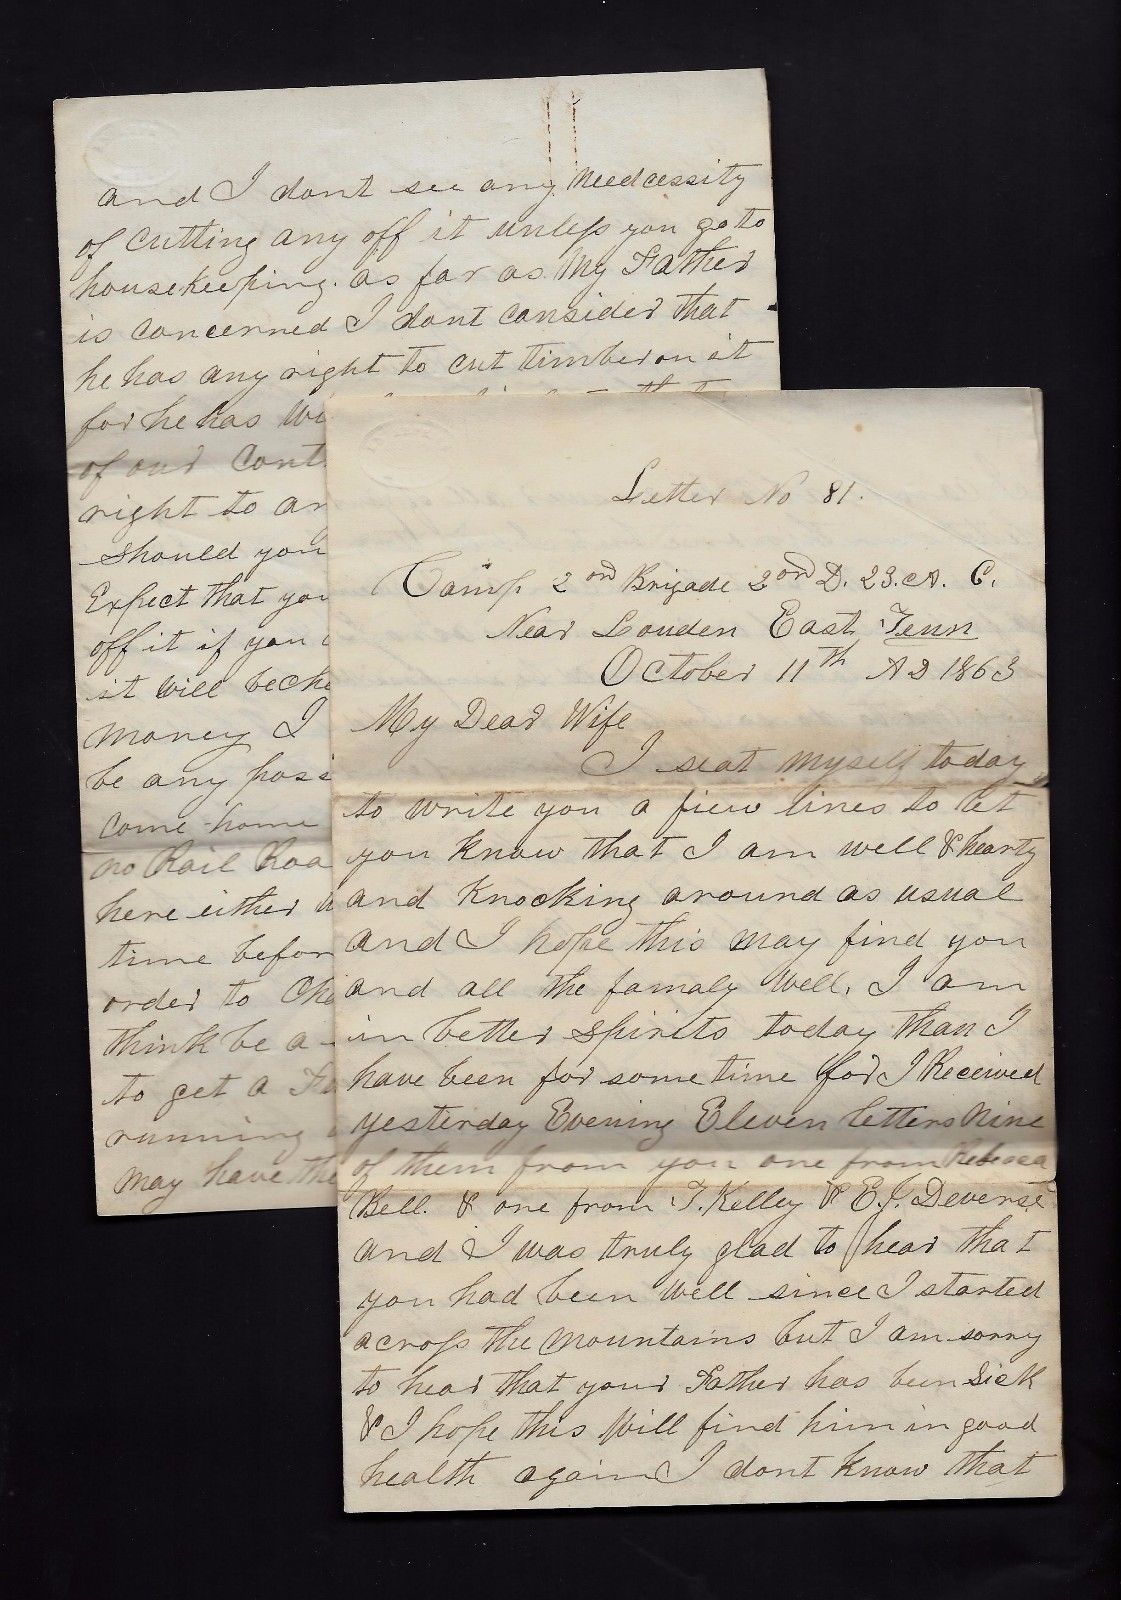 and I dont see any Needcessity
of cutting any off it unless you go to
housekeeping. as far as My Father
is concerned I dont consider that
he has any right to cut timber on it
for he has
of our Cont
right to an
should you
Expect that you
off it if you
it will be
money I
be any poss
come home
no Rail Roa
here either
time befor
order to Ch
think be a
to get a
running
may have the
Letter No 81.
Camp 2ond Brigade 2ond D. 23. A. C.
Near Louden East Tenn
October 11th AD 1863
My Dear Wife
I seat myself today
to write you a fiew lines to let
you know that I am well & hearty
and Knocking around as usual
and I hope this may find you
and all the famaly well, I am
in better spirits today than I
have been for some time for I Received
yesterday Evening Eleven letters Nine
of them from you one from Rebecca
Bell. & one from T. Kelley & E. J. Deverse
and I was truly glad to hear that
you had been well since I started
across the mountains but I am sorry
to hear that your Father has been Sick
& I hope this Will find him in good
health again I dont know that